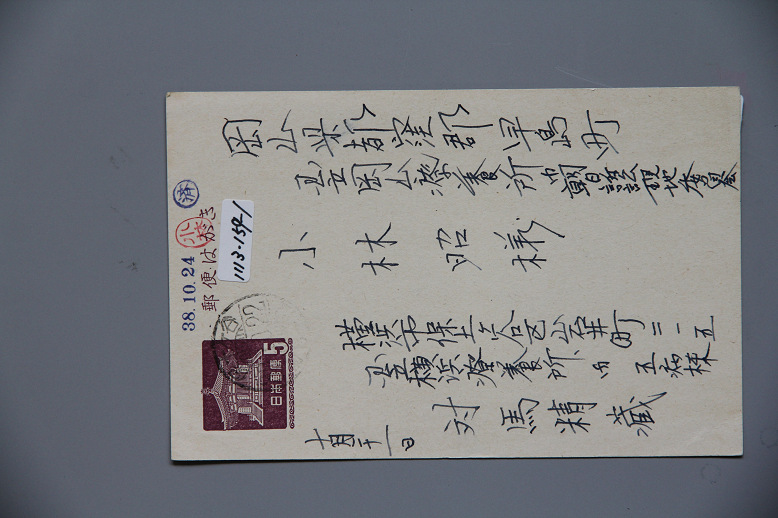 郵便はがき
38.10.24
済
1113-1541
日本郵便
5
岡山県都窪郡早島町
国立岡山療養所内 朝日訴訟現地本部
小林昭様
横浜市保土ヶ谷区岩井町二一五
国立横浜療養所内 五病棟
対馬精蔵
十月二十一日